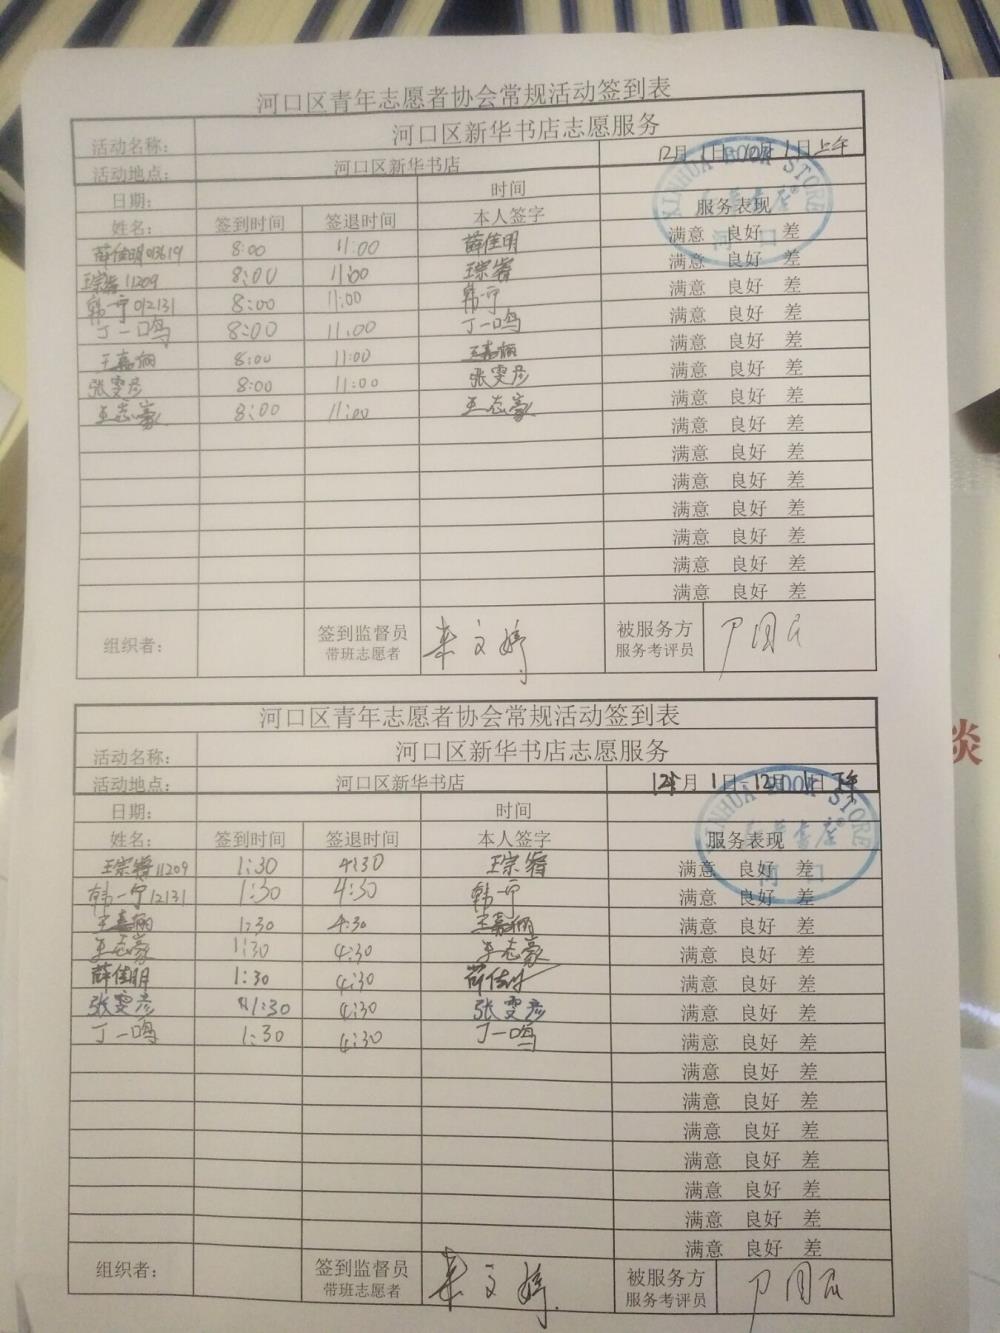 河口区青年志愿者协会常规活动签到表
活动名称： 河口区新华书店志愿服务
活动地点： 河口区新华书店 12月1日 1日上午
日期： 时间
姓名： 签到时间 签退时间 本人签字 服务表现
XINHUA BOOK STORE
河口
薛佳明03619 8:00 11:00 薛佳明 满意 良好 差
王宗睿11209 8:00 11:00 王宗睿 满意 良好 差
韩一宁012131 8:00 11:00 韩一宁 满意 良好 差
丁一鸣 8:00 11:00 丁一鸣 满意 良好 差
王嘉俪 8:00 11:00 王嘉俪 满意 良好 差
张雯彦 8:00 11:00 张雯彦 满意 良好 差
王志豪 8:00 11:00 王志豪 满意 良好 差
满意 良好 差
满意 良好 差
满意 良好 差
满意 良好 差
满意 良好 差
满意 良好 差
满意 良好 差
组织者： 签到监督员 被服务方
带班志愿者 服务考评员
河口区青年志愿者协会常规活动签到表
活动名称： 河口区新华书店志愿服务
活动地点： 河口区新华书店 12月1日-12月1日下午
日期： 时间
姓名： 签到时间 签退时间 本人签字 服务表现
XINHUA BOOK STORE
河口
王宗睿11209 1:30 4:30 王宗睿 满意 良好 差
韩一宁12131 1:30 4:30 韩一宁 满意 良好 差
王嘉俪 1:30 4:30 王嘉俪 满意 良好 差
王志豪 1:30 4:30 王志豪 满意 良好 差
薛佳明 1:30 4:30 薛佳明 满意 良好 差
张雯彦 1:30 4:30 张雯彦 满意 良好 差
丁一鸣 1:30 4:30 丁一鸣 满意 良好 差
满意 良好 差
满意 良好 差
满意 良好 差
满意 良好 差
满意 良好 差
满意 良好 差
满意 良好 差
组织者： 签到监督员 被服务方
带班志愿者 服务考评员
谈